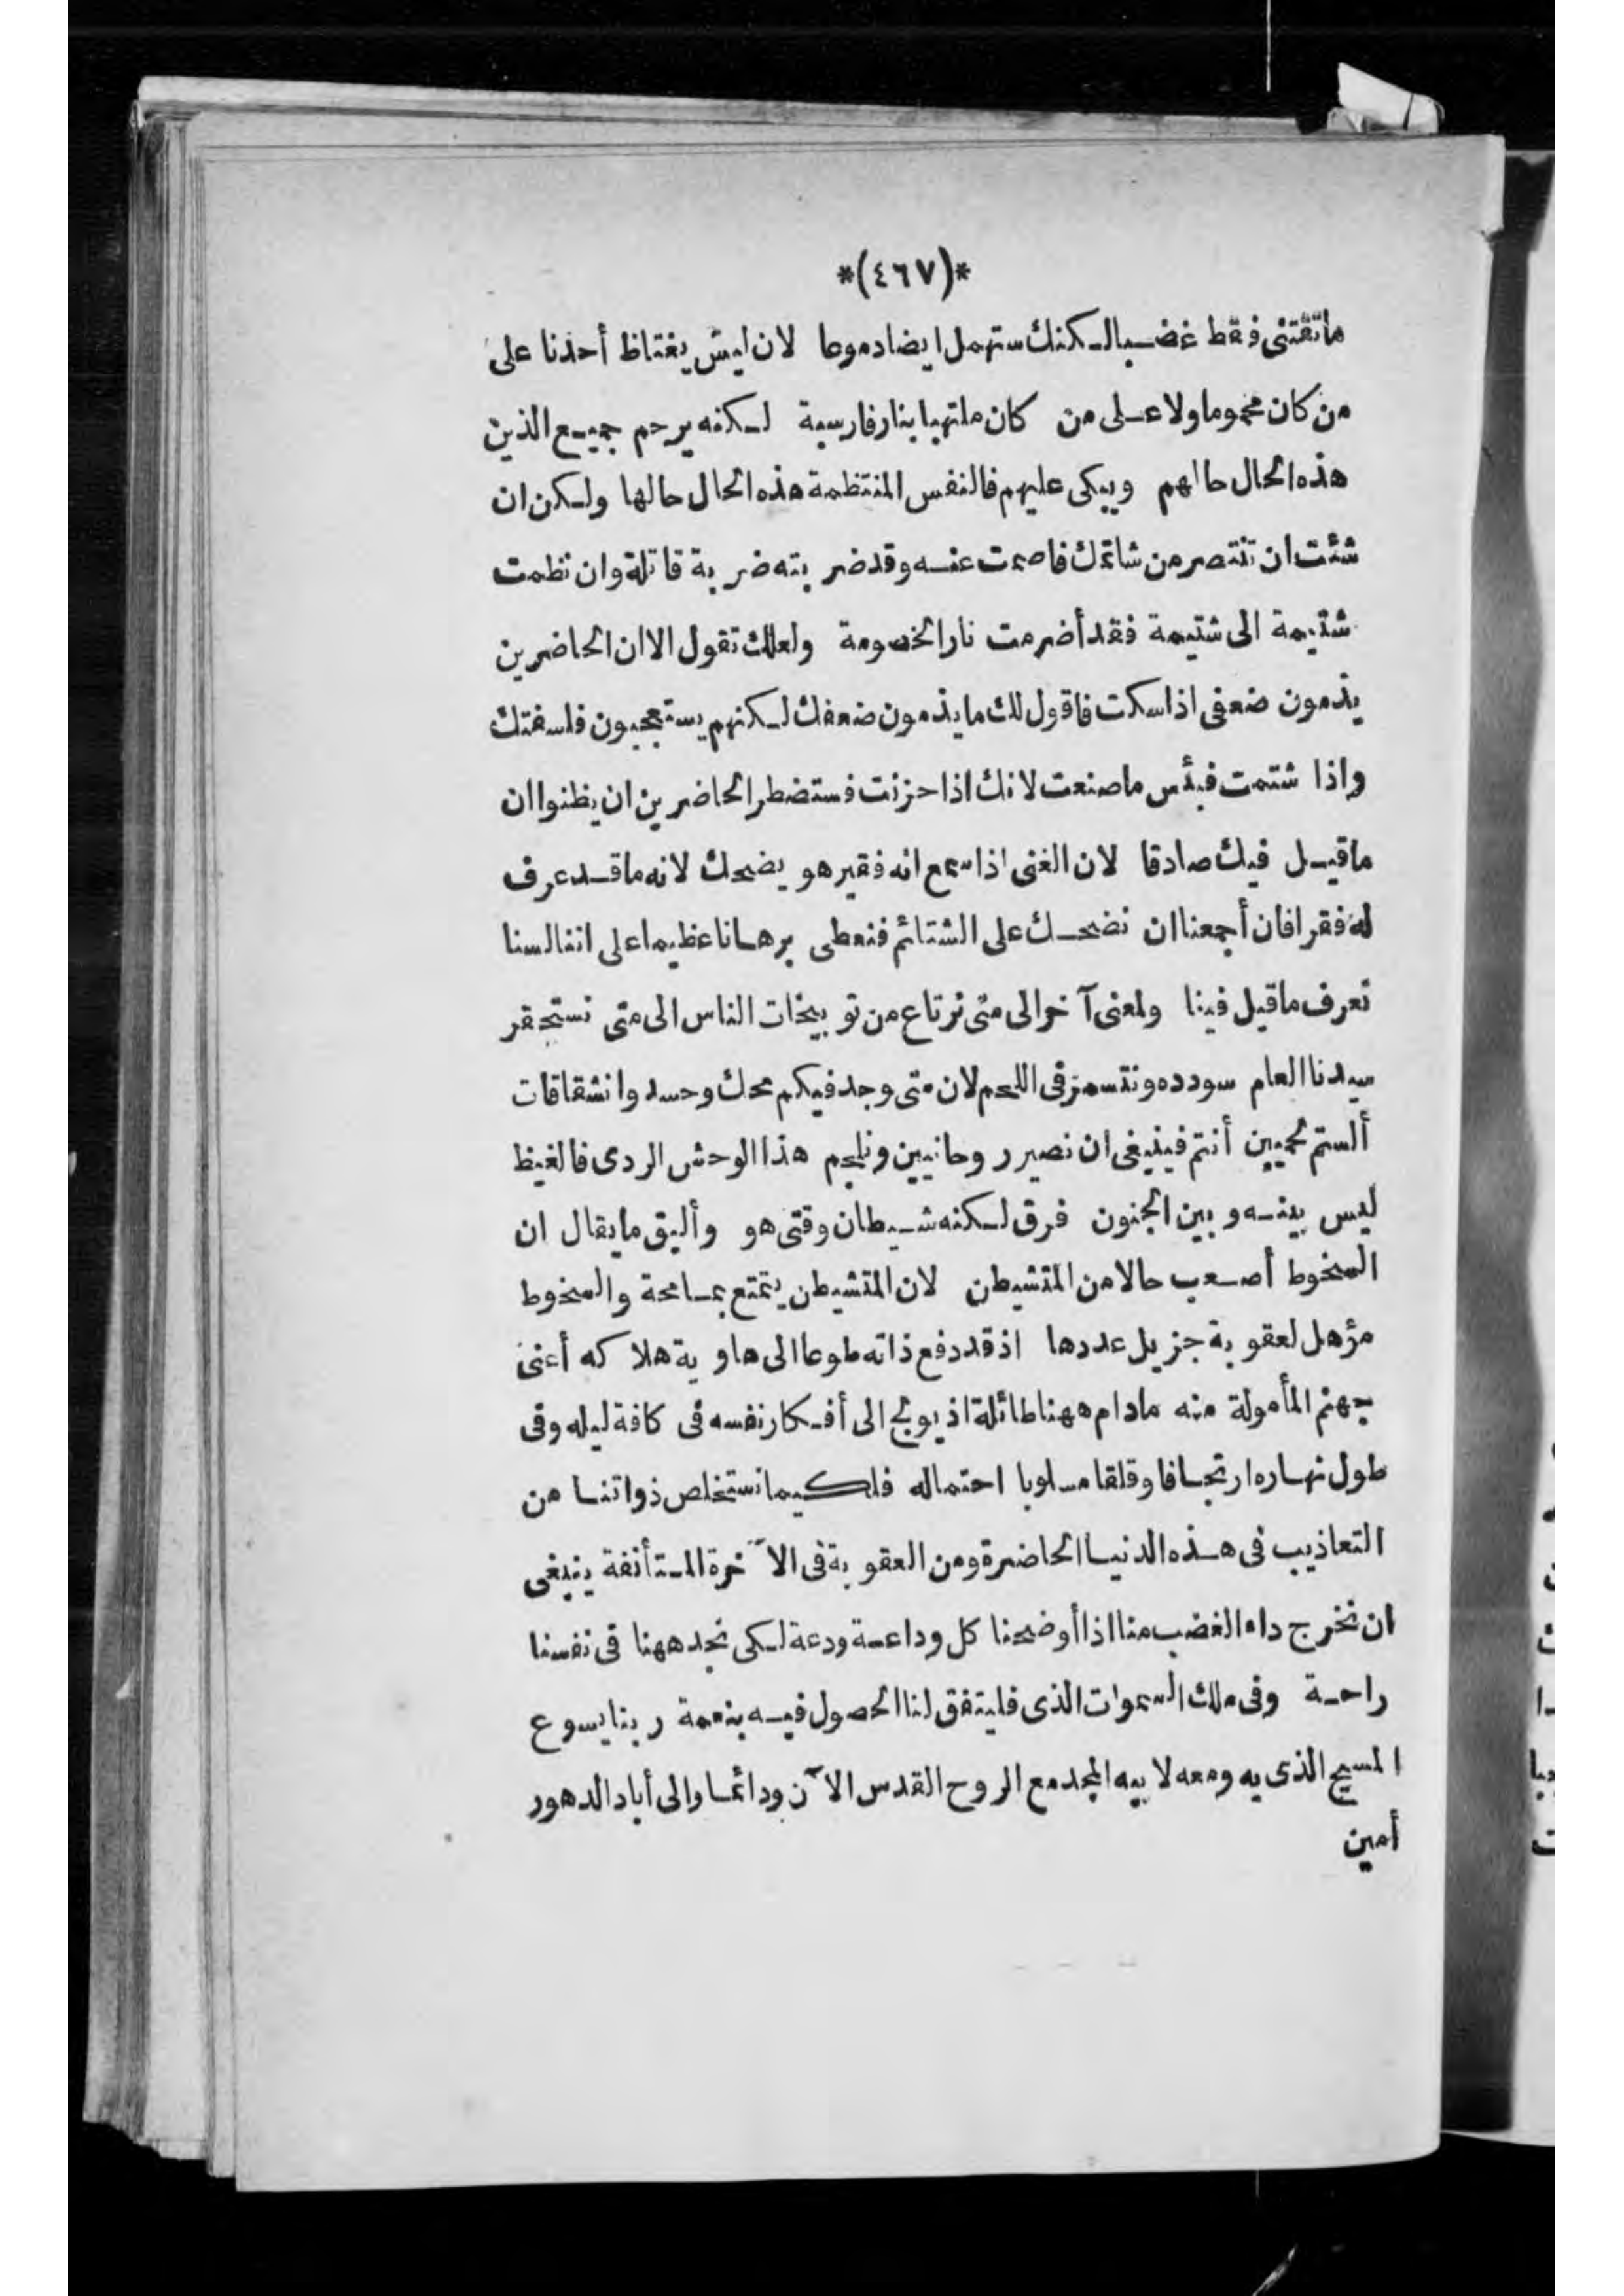 *(٤٦٧)*
ماتقتنى فقط غضبا لكنك ستهمل ايضا دموعا لان ليس يغتاظ أحدنا على
من كان محموما ولا على من كان ملتهبا بنار فارسية لكنه يرحم جميع الذين
هذه الحال حالهم ويبكى عليهم فالنفس المنتظمة هذه الحال حالها ولكن ان
شئت ان تنتصر من شاتمك فاصمت عنه وقد ضربته ضربة قاتلة وان نظمت
شتيمة الى شتيمة فقد أضرمت نار الخصومة ولعلك تقول الا ان الحاضرين
يذمون ضعفى اذا سكت فاقول لك ما يذمون ضعفك لكنهم يستعجبون فلسفتك
واذا شتمت فبئس ما صنعت لانك اذا حزنت فستضطر الحاضرين ان يظنوا ان
ما قيل فيك صادقا لان الغنى اذا سمع انه فقير هو يضحك لانه ما قد عرف
له فقرا فان أجمعنا ان نضحك على الشتائم فنعطى برهانا عظيما على اننا لسنا
نعرف ما قيل فينا ولمعنى آخر الى متى نرتاع من توبيخات الناس الى متى نستحقر
سيدنا العام سودده ونتسمر فى اللحم لان متى وجد فيكم محك وحسد وانشقاقات
ألستم لحميين أنتم فينبغى ان نصير روحانيين ونلجم هذا الوحش الردى فالغيظ
ليس بينه وبين الجنون فرق لكنه شيطان وقتى هو وأليق ما يقال ان
السخوط أصعب حالا من المتشيطن لان المتشيطن يتمتع بمسامحة والسخوط
مؤهل لعقوبة جزيل عددها اذ قد دفع ذاته طوعا الى هاوية هلاكه أعنى
جهنم المأمولة منه مادام ههنا طائلة اذ يولج الى أفكار نفسه فى كافة ليله وفى
طول نهاره ارتجافا وقلقا مسلوبا احتماله فلكيما نستخلص ذواتنا من
التعاذيب فى هذه الدنيا الحاضرة ومن العقوبة فى الآخرة المستأنفة ينبغى
ان نخرج داء الغضب منا اذا أوضحنا كل وداعة ودعة لكى نجد ههنا فى نفسنا
راحة وفى ملك السموات الذى فليتفق لنا الحصول فيه بنعمة ربنا يسوع
المسيح الذى به ومعه لابيه المجد مع الروح القدس الآن ودائما والى أباد الدهور
أمين